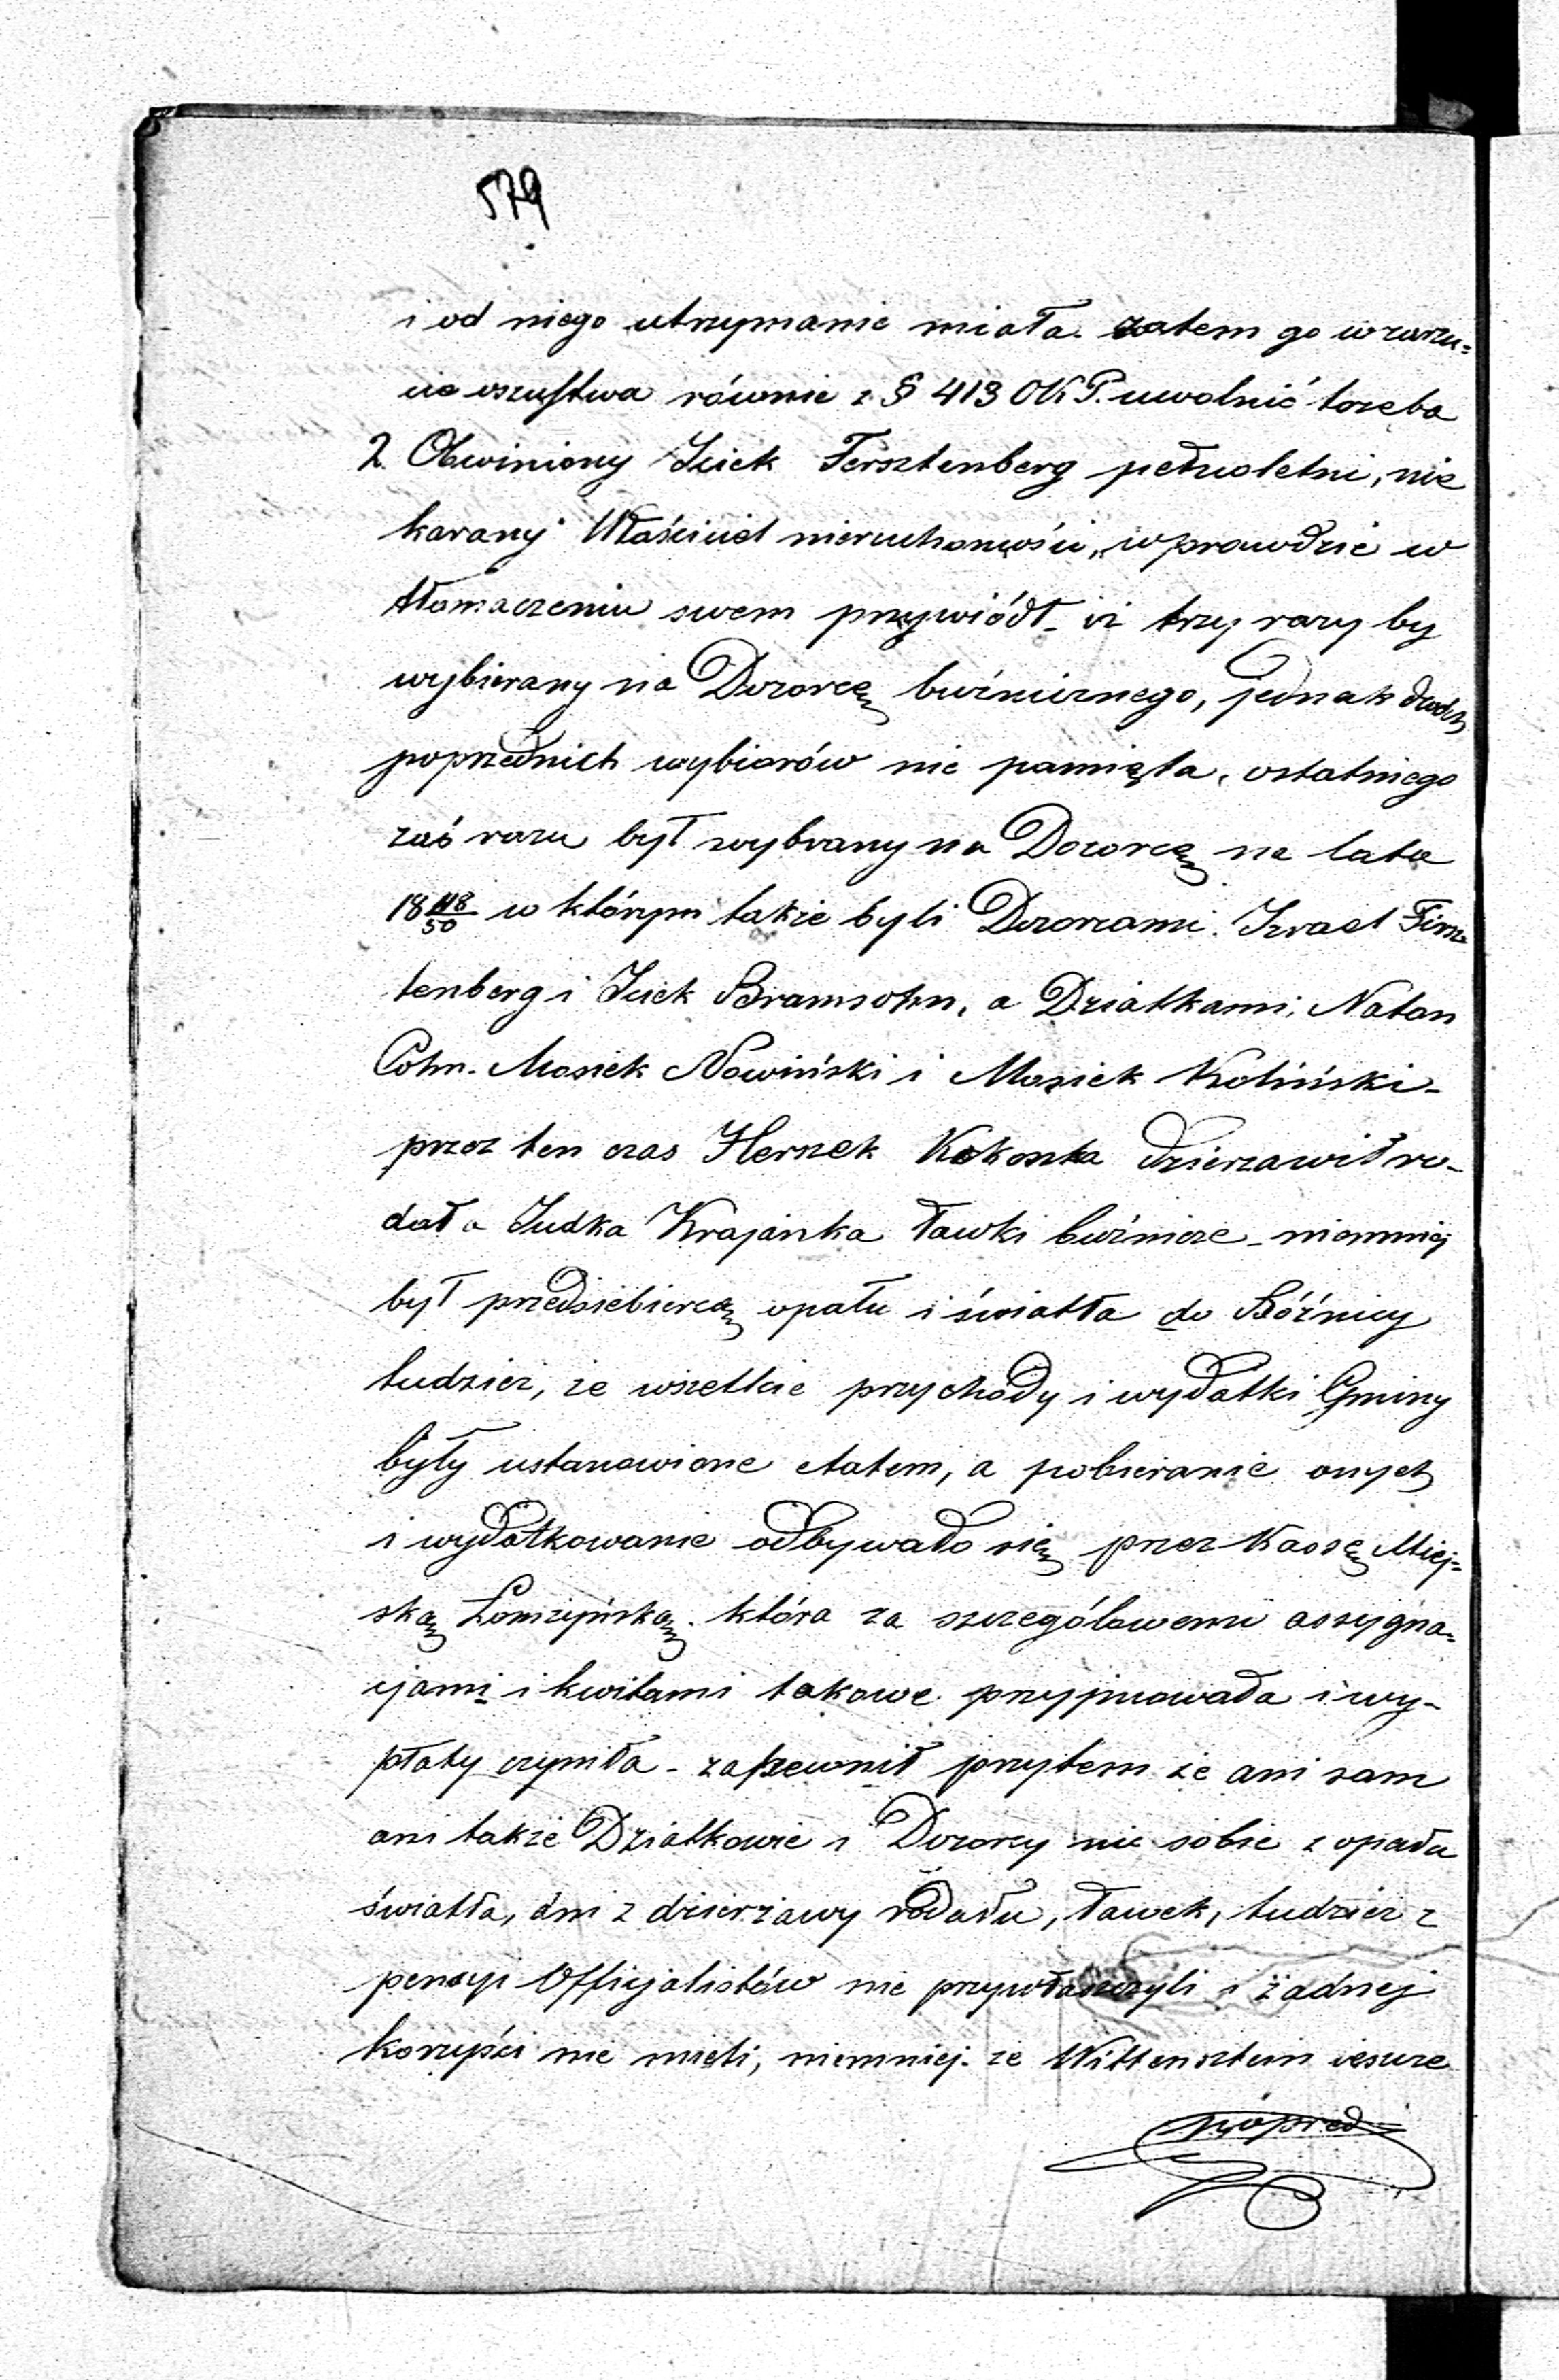 579
i od niego utrzymanie miała. zatem go w zarzu=
cie oszustwa równie z § 413 OKP. uwolnić trzeba
2. Obwiniony Iciek Fersztenberg pełnoletni, nie
karany Właściciel nieruchomości, wprawdzie w
tłomaczeniu swem przywiódł - iż trzy razy by
wybierany na Dozorcę bużnicznego, jednak dwóch
poprzednich wybiorów nie pamięta, ostatniego
zaś razu był wybrany na Dozorcę na lata
18 48/50 w którym także byli Dozorcami. Izrael Firsz
tenberg i Iciek Bramsohn, a Dziatkami, Natan
Cohn. Mosiek Nowiński i Mosiek Koliński -
przez ten czas Herszek Kokoszka dzierzawił ro-
dał a Judka Krajanka ławki bużnicze - niemniej
był przedsiebiercą opału i światła do Bóżnicy
tudzież, że wszelkie przychody i wydatki Gminy
były ustanowione etatem, a pobieranie onych
i wydatkowanie odbywało się przez Kassę Miej=
ską Łomżyńską. która za szczegółowemi assygna-
cjami i kwitami takowe przyjmowała i wy-
płaty czyniła - zapewnił przytem że ani sam
ani także Dziatkowie i Dozorcy nic sobie z opału
światła, ani z dzierżawy rodału, ławek, tudzież z
pensyi Officjalistów nie przywłaszczyli i żadnej
korzyści nie mieli, niemniej. że Wittensztein ieszcze